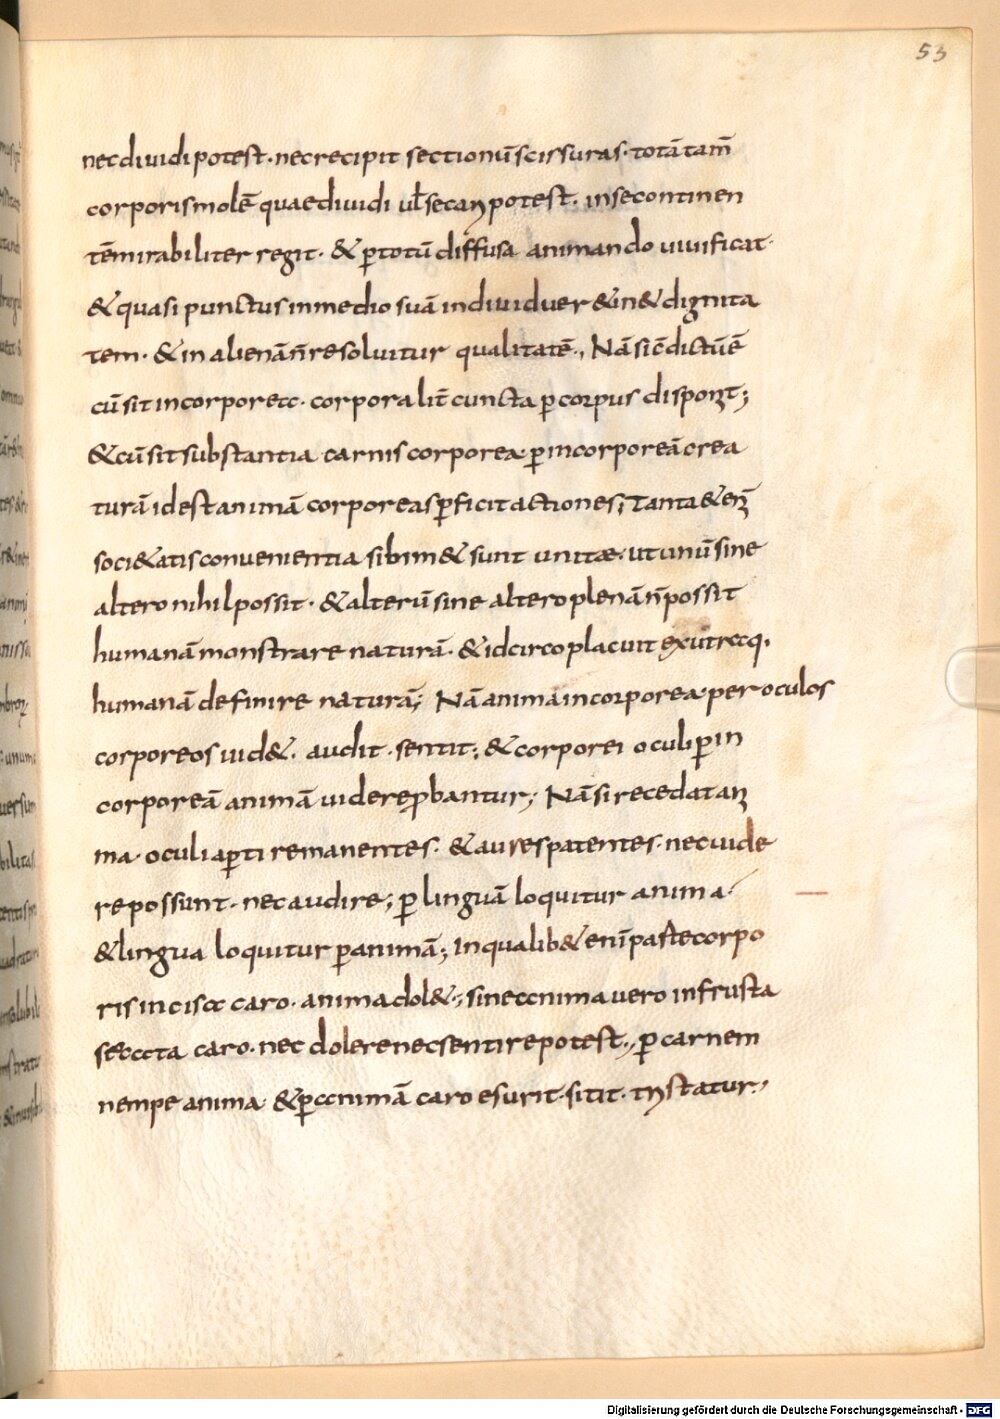 53
nec diuidi potest · nec recipit sectionū scissuras · totā tam̄
corporis molē quae diuidi ul̄ secari potest · in se continen
tē mirabiliter regit · & ꝑ totū diffusa animando uiuificat ·
& quasi punctus in medio suā indiuiduer&in& dignita
tem · & in alienā n̄ resoluitur qualitatē ., Nā sic̄ dictū ē
cū sit incorporea · corporalit̄ cuncta ꝑ corpus disponit ;
& cū sit substantia carnis corporea ꝑ incorporeā crea
turā id est animā corporeas ꝑficit actiones ; Tanta & eni
soci&atis conuenientia sibim& sunt unitae · ut unū sine
altero nihil possit · & alterū sine altero plenā n̄ possit
humanā monstrare naturā · & idcirco placuit ex utraq ·
humanā definire naturā ; Nā anima incorporea per oculos
corporeos uid& · audit · sentit ; & corporei oculi ꝑ in
corporeā animā uidere ꝓbantur ; Nā si recedat ani
ma · oculi aꝑti remanentes · & aures patentes · nec uide
re possunt · nec audire ; ꝑ linguā loquitur anima ·
& lingua loquitur ꝑ animā ; In qualib& eni parte corpo
ris incisa caro · anima dol& ·; sine anima uero in frusta
secata caro · nec dolere nec sentire potest ., ꝑ carnem
nempe anima & ꝑ animā caro esurit · sitit · tristatur ·,
Digitalisierung gefördert durch die Deutsche Forschungsgemeinschaft - DFG